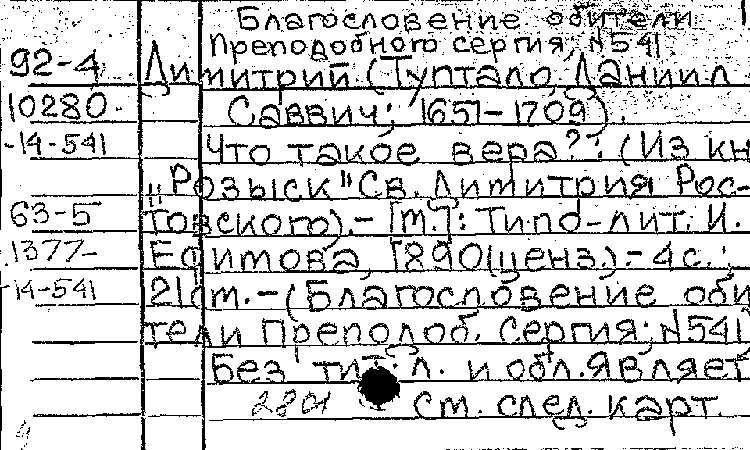 Благословение обители
Преподобного сергия, №541.
92-4 Димитрий (Туптало, Даниил
10280. Саввич; 1651-1709).
-14-541 Что такое вера?: (Из кн
„Розыск" Св. Димитрия Рос-
63-5 товского).-[М.]: Типо-лит. И.
1377- Ефимова, 1890(ценз.).-4с.;
-14-541 21см.-(Благословение оби
тели Преподоб. Сергия; №541
Без тит. л. и обл. Являет
2801 См. след. карт.